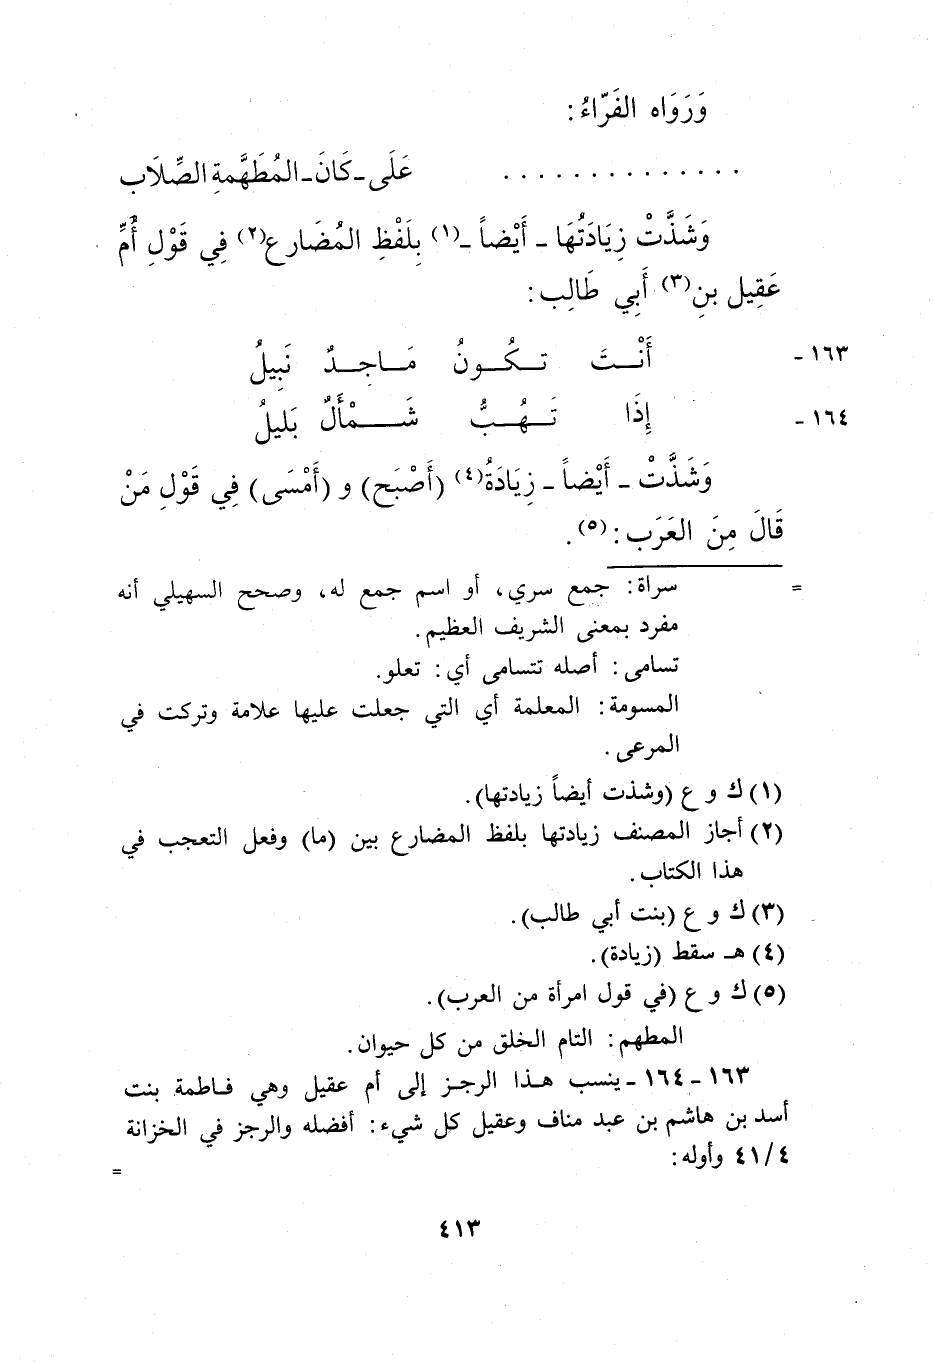 وَرَوَاه الفَرّاءُ:
. . . . . . . . . . . . . . عَلَى ـ كَانَ ـ المُطَهَّمةِ الصِّلَاب
وَشَذَّتْ زِيَادَتُهَا ـ أَيْضاً ـ(١) بِلَفْظِ المُضَارعِ(٢) فِي قَوْلِ أُمِّ
عَقِيل بنِ(٣) أَبِي طَالِب:
١٦٣ ـ أَنْـتَ تـكُـونُ مَـاجـدٌ نَبِيلُ
١٦٤ ـ إِذَا تَـهُـبُّ شَـمْأَلٌ بَلِيلُ
وَشَذَّتْ ـ أَيْضاً ـ زِيَادَةُ(٤) (أَصْبَح) و (أَمْسَى) فِي قَوْلِ مَنْ
قَالَ مِنَ العَرَب:(٥).
= سراة: جمع سري، أو اسم جمع له، وصحح السهيلي أنه
مفرد بمعنى الشريف العظيم.
تسامى: أصله تتسامى أي: تعلو.
المسومة: المعلمة أي التي جعلت عليها علامة وتركت في
المرعى.
(١) ك و ع (وشذت أيضاً زيادتها).
(٢) أجاز المصنف زيادتها بلفظ المضارع بين (ما) وفعل التعجب في
هذا الكتاب.
(٣) ك و ع (بنت أبي طالب).
(٤) هـ سقط (زيادة).
(٥) ك و ع (في قول امرأة من العرب).
المطهم: التام الخلق من كل حيوان.
١٦٣ ـ ١٦٤ ـ ينسب هـذا الرجـز إلى أم عقيل وهي فـاطمة بنت
أسد بن هاشم بن عبد مناف وعقيل كل شيء: أفضله والرجز في الخزانة
٤/ ٤١ وأوله:
=
٤١٣